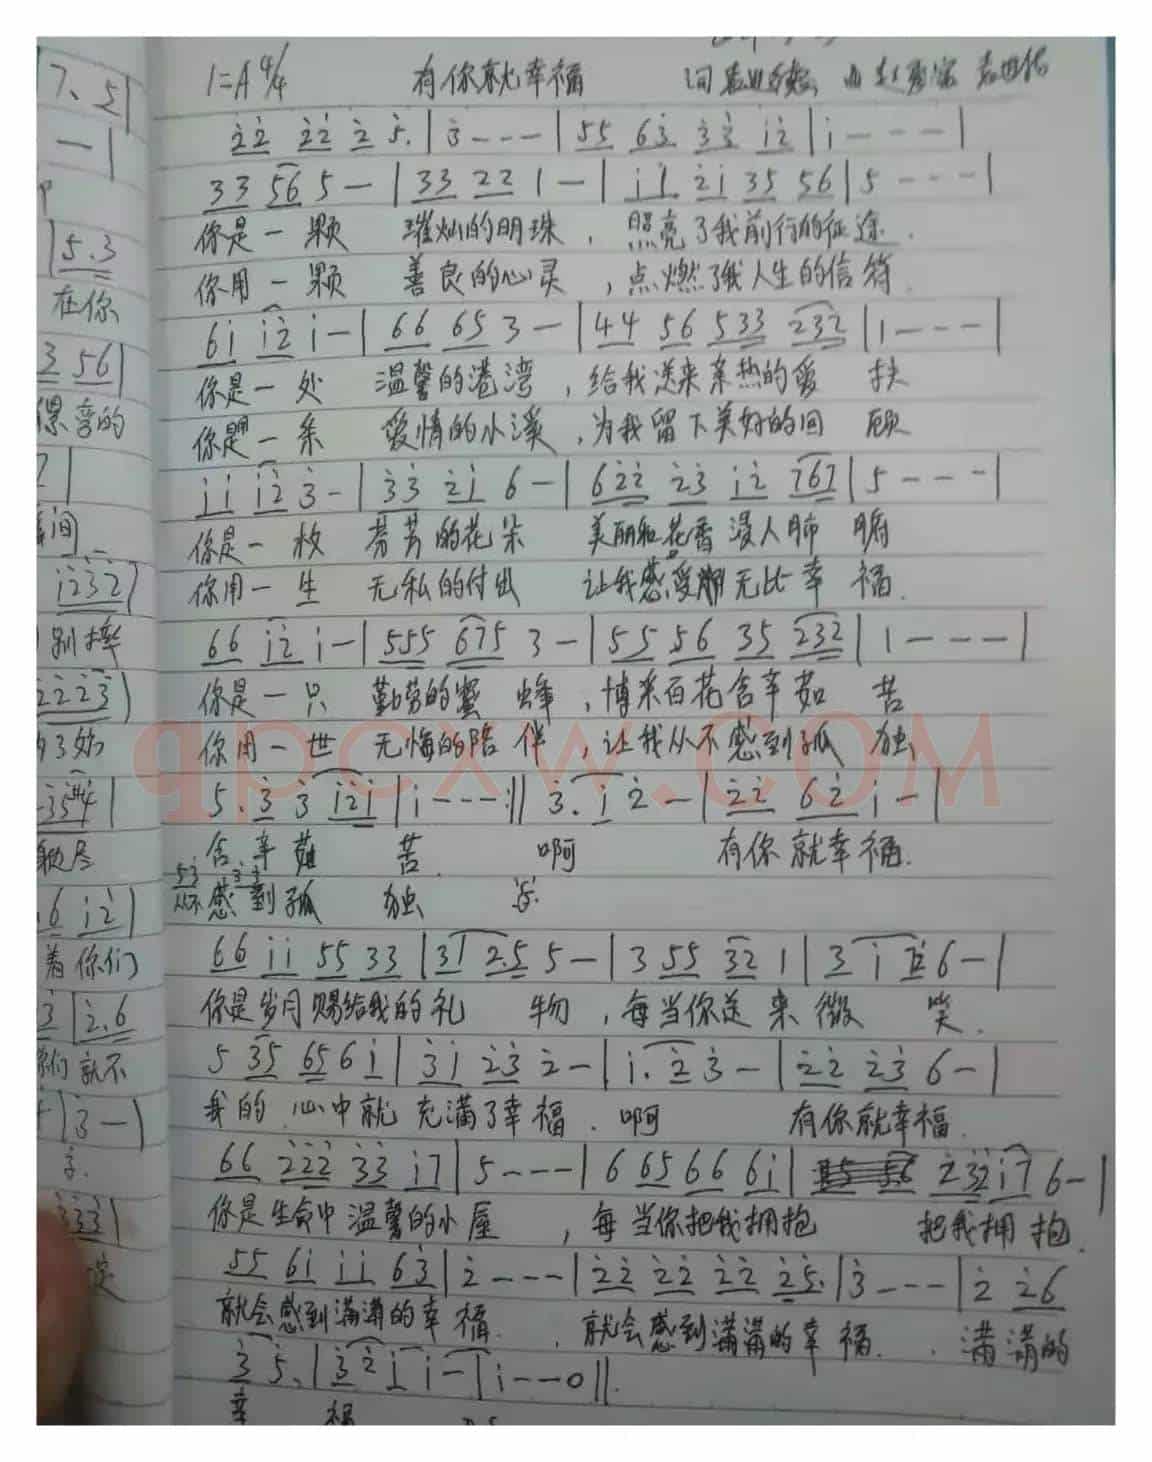 1=A 4/4 有你就幸福 词 曲
2̇2̇ 2̇2̇ 2̇ 5̇. | 3̇ - - - | 55 63̇ 3̇3̇ 1̇2̇ | 1̇ - - - |
33 56 5 - | 33 22 1 - | 1̇1̇ 2̇1̇ 35 56 | 5 - - - |
你是一颗 璀灿的明珠，照亮了我前行的征途．
你用一颗 善良的心灵，点燃了我人生的信符．
61̇ 1̇2̇ 1̇ - | 66 65 3 - | 44 56 533 232 | 1 - - - |
你是一处 温馨的港湾，给我送来亲热的爱 扶
你是一条 爱情的小溪，为我留下美好的回 顾
1̇1̇ 1̇2̇ 3̇ - | 3̇3̇ 2̇1̇ 6 - | 62̇2̇ 2̇3̇ 1̇2̇ 767 | 5 - - - |
你是一枚 芬芳的花朵 美丽和花香浸人肺 腑
你用一生 无私的付出 让我感受 无比幸 福．
66 1̇2̇ 1̇ - | 555 675 3 - | 55 56 35 232 | 1 - - - |
你是一只 勤劳的蜜 蜂，博采百花含辛茹 苦
你用一世 无悔的陪 伴，让我从不感到孤 独
5. 3̇ 3̇ 1̇2̇1̇ | 1̇ - - - :|| 3̇. 1̇ 2̇ - | 2̇2̇ 62̇ 1̇ - |
含辛茹 苦． 啊 有你就幸福．
53̇ 3̇3̇
从不感到孤 独
66 1̇1̇ 55 33 | 31 2.5 5 - | 3 55 32 1 | 3 1̇ 6 - |
你是岁月赐给我的礼 物，每当你送来微 笑．
5 35 65 6 1̇ | 3̇1̇ 2̇3̇ 2̇ - | 1̇. 2̇ 3̇ - | 2̇2̇ 2̇3̇ 6 - |
我的心中就充满了幸福．啊 有你就幸福．
66 2̇2̇2̇ 3̇3̇ 1̇7 | 5 - - - | 6 65 66 61̇ | 2̇3̇2̇1̇7 6 - |
你是生命中温馨的小屋，每当你把我拥抱 把我拥抱．
55 61̇ 1̇1̇ 63̇ | 2̇ - - - | 2̇2̇ 2̇2̇ 2̇2̇ 2̇5̇. | 3̇ - - - | 2̇ 2̇6
就会感到满满的幸福．．就会感到满满的幸福．．满满的
3̇ 5̇. | 3̇ 2̇ 1̇ 1̇ - | 1̇ - - 0 ||.
幸 福
7. 5 |
- |
| 5.3
在你
3 56 |
的
1̇2̇3̇2̇ |
2̇2̇2̇3̇ |
6 1̇2̇ |
着你们
3̇ | 2̇.6
们就不
| 3̇ - |
qpcxw.com